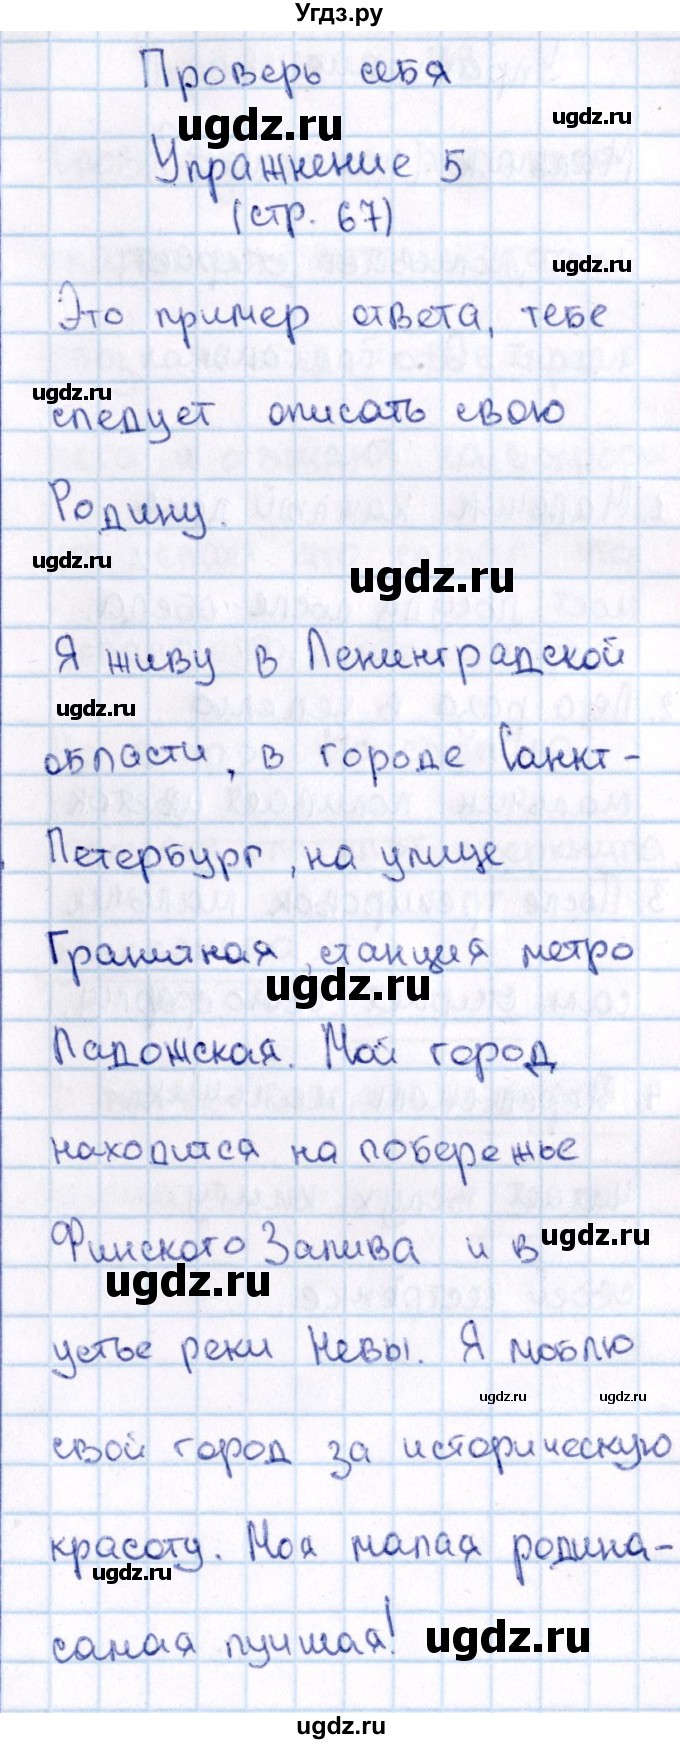 Угдз.ру
Проверь себя
ugdz.ru
ugdz.ru
Упражнение 5
(стр. 67)
ugdz.ru
Это пример ответа, тебе
ugdz.ru
следует описать свою
Родину.
ugdz.ru
ugdz.ru
Я живу в Ленинградской
ugdz.ru
области, в городе Санкт-
Петербург, на улице
Гранитная, станция метро
ugdz.ru
Ладожская. Мой город
находится на побережье
Финского Залива и в
ugdz.ru
ugdz.ru
устье реки Невы. Я люблю
ugdz.ru
ugdz.ru
свой город за историческую
красоту. Моя малая родина-
ugdz.ru
самая лучшая!
ugdz.ru
ugdz.ru